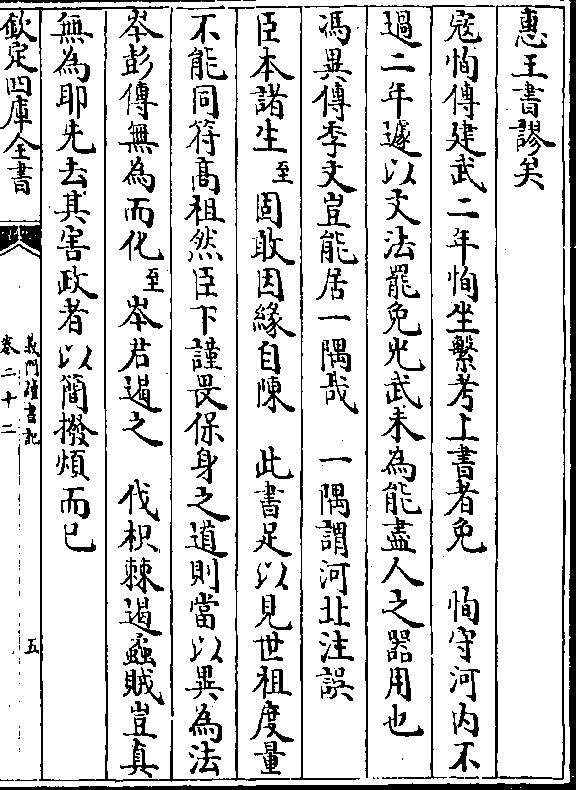 惠王書謬矣
寇恂傳建武二年恂坐繫考上書者免　恂守河内不
過二年遽以文法罷免光武未為能盡人之器用也
馮異傳李文豈能居一隅哉　一隅謂河北注誤
臣本諸生至固敢因緣自陳　此書足以見世祖度量
不能同符高祖然臣下謹畏保身之道則當以異為法
岑彭傳無為而化至岑君遏之　伐枳棘遏蟊賊豈真
無為耶先去其害政者以簡撥煩而已
欽定四庫全書
義門讀書記
卷二十二
五